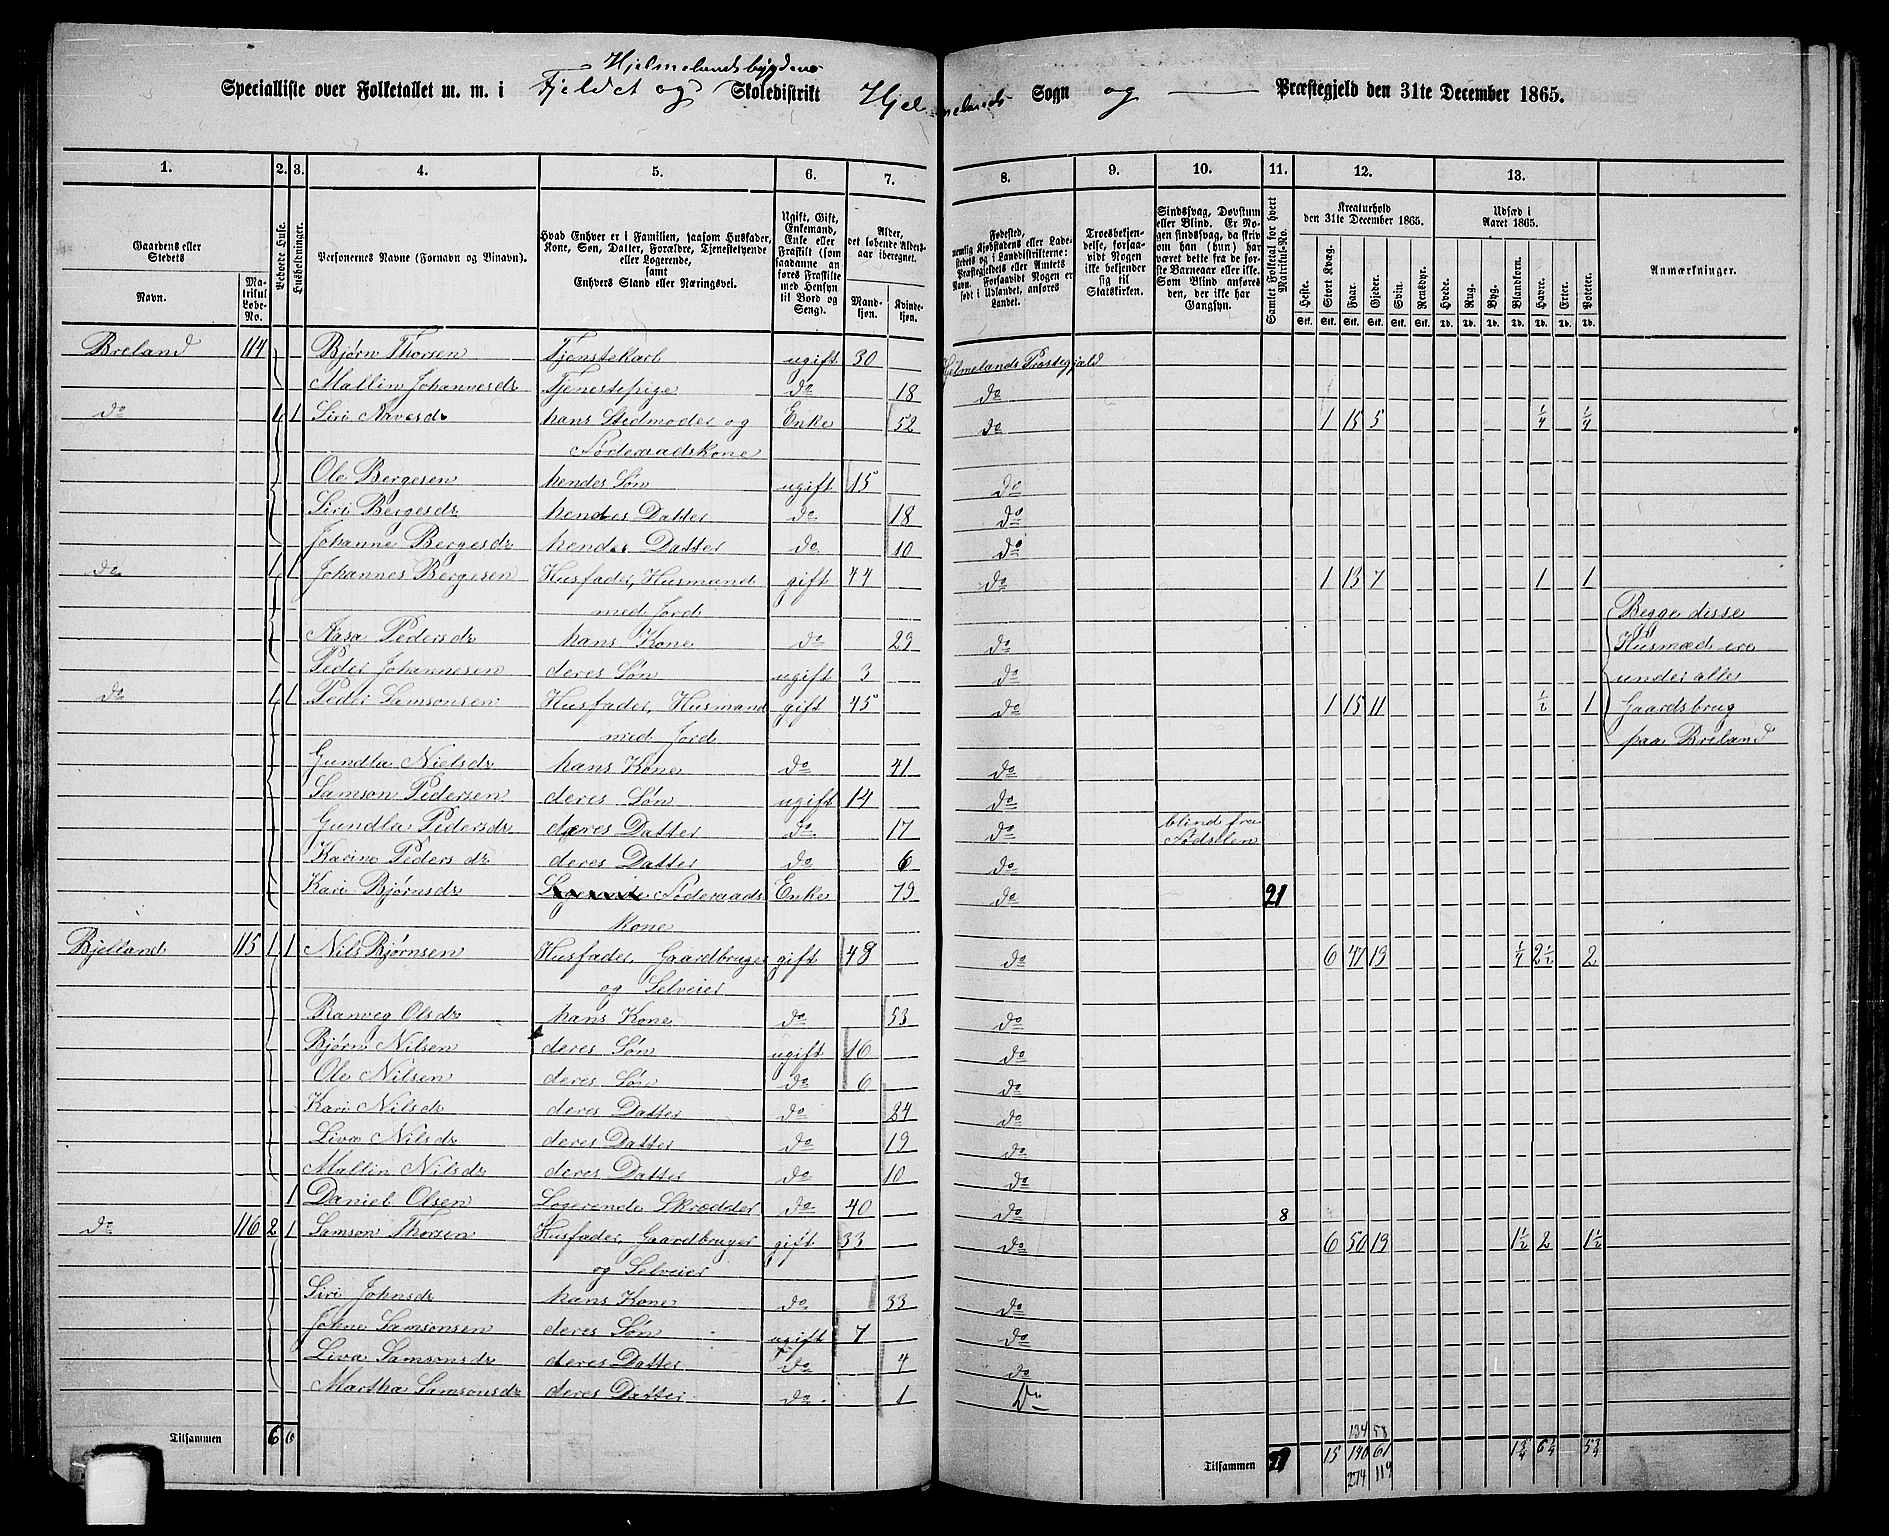 Specialliste over Folketallet m. m. i Fjeldet og Hjelmelandsbygdens Skoledistrikt Hjelmelands Sogn og — Præstegjeld den 31te December 1865.
1. 2. 3. 4. 5. 6. 7. 8. 9. 10. 11. 12. 13.
Gaardens eller Stedets
Navn. Matrikul Løbe-No. Beboede Huse. Husholdninger. Personernes Navne (Fornavn og Tilnavn). Hvad Enhver er i Familien, saasom Husfader, Kone, Søn, Datter, Forældre, Tjenestetyende eller Logerende, samt Enhvers Stand eller Næringsvei. Ugift, Gift, Enkemand, Enke eller Fraskilt (som saadanne anføres Fraskilte med Hensyn til Bord og Seng). Alder, det løbende Alders-aar iberegnet. Mandkjøn. Kvindekjøn. Fødested, nemlig Kjøbstadens eller Ladestedets og i Landdistrikterne: Præstegjeldets eller Amtets Navn. Forsaavidt Nogen er født i Udlandet, anføres Landet. Troesbekjendelse, forsaavidt Nogen ikke bekjender sig til Statskirken. Sindssvag, Døvstum eller Blind. Er Nogen sindssvag, da skrives om han (hun) har været dette fra de første Barneaar eller ikke. Som Blind anføres den, der ikke har Gangsyn. Samlet Folketal for hvert Matrikul-No. Kreaturhold den 31te December 1865. Udsæd i Aaret 1865. Anmærkninger.
Heste. Stort Kvæg. Faar. Gjeder. Svin. Rensdyr. Hvede. Rug. Byg. Blandkorn. Havre. Erter. Poteter.
Stk. Stk. Stk. Stk. Stk. Stk. Td. Td. Td. Td. Td. Td. Td.
Breland 114 Bjørn Thorsen Tjenstekarl ugift 30 Hjelmelands Præstegjæld
Mallin Johannesdr Tjenestepige do 18 do
do 1 1 Siri Navesdr hans Stedmoder og Enke 52 do 1 15 5 1/4 1/4
Føderaadskone
Ole Bergesen hendes Søn ugift 15 do
Siri Bergesdr hendes Datter do 18 do
Johanne Bergesdr hendes Datter do 10 do
do 1 1 Johannes Bergesen Husfader, Husmand gift 44 do 1 13 7 1 1
med Jord Begge disse
Aasa Pedersdr hans Kone do 29 do Husmæd ere
Peder Johannesen deres Søn ugift 3 do under alle
do 1 1 Peder Samsonsen Husfader, Husmand gift 45 do 1 15 11 1/2 1 Gaardsbrug
med Jord paa Breland
Gundla Nielsdr hans Kone do 41 do
Samson Pedersen deres Søn ugift 14 do
Gundla Pedersdr deres Datter do 17 do blind fra Fødselen
Karine Pedersdr deres Datter do 6 do
Kari Bjørnsdr Logerende Føderaads Enke 79 do 21
kone
Bjelland 115 1 1 Nils Bjørnsen Husfader, Gaardbruger gift 48 do 6 47 13 1/4 2 1/2 2
og Selveier
Ranveg Olsdr hans Kone do 53 do
Bjørn Nilsen deres Søn ugift 16 do
Ole Nilsen deres Søn do 6 do
Kari Nilsdr deres Datter do 24 do
Liva Nilsdr deres Datter do 19 do
Mallin Nilsdr deres Datter do 10 do
1 Daniel Olsen Logerende Skrædder do 40 do 8
do 116 2 1 Samson Thorsen Husfader, Gaardbruger gift 33 do 6 50 13 1 1/2 2 1 1/2
og Selveier
Siri Johnsdr hans Kone do 33 do
Johne Samsonsen deres Søn ugift 7 do
Liva Samsonsdr deres Datter do 4 do
Martha Samsonsdr deres Datter do 1 Do
134 58
Tilsammen 6 6 Tilsammen 29 15 140 61 1 3/4 6 1/4 5 3/4
274 119